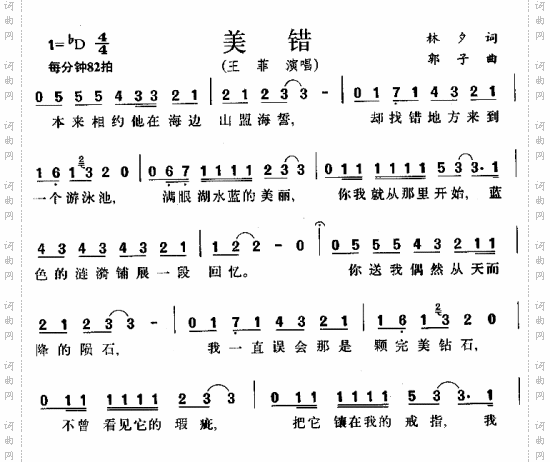 美错
(王菲演唱)
1=♭D 4/4
每分钟82拍
林夕 词
郭子 曲
0 5 5 5 4 3 3 2 1 | 2 1 2 3 3 - | 0 1 7 1 4 3 2 1 |
本来相约他在海边 山盟海誓, 却找错地方来到
1 6 1 3 2 0 | 0 6 7 1 1 1 1 2 3 3 | 0 1 1 1 1 1 1 5 3 3· 1
一个游泳池, 满眼湖水蓝的美丽, 你我就从那里开始, 蓝
4 3 4 3 4 3 2 1 | 1 2 2 - 0 | 0 5 5 5 4 3 2 1 1
色的涟漪铺展一段 回忆。 你送我偶然从天而
2 1 2 3 3 - | 0 1 7 1 4 3 2 1 | 1 6 1 3 2 0
降的陨石, 我一直误会那是 颗完美钻石,
0 1 1 1 1 1 1 2 3 3 | 0 1 1 1 1 1 1 5 3 3· 1
不曾看见它的瑕疵, 把它镶在我的戒指, 我
词曲网
词曲网
词曲网
词曲网
词曲网
词曲网
词曲网
词曲网